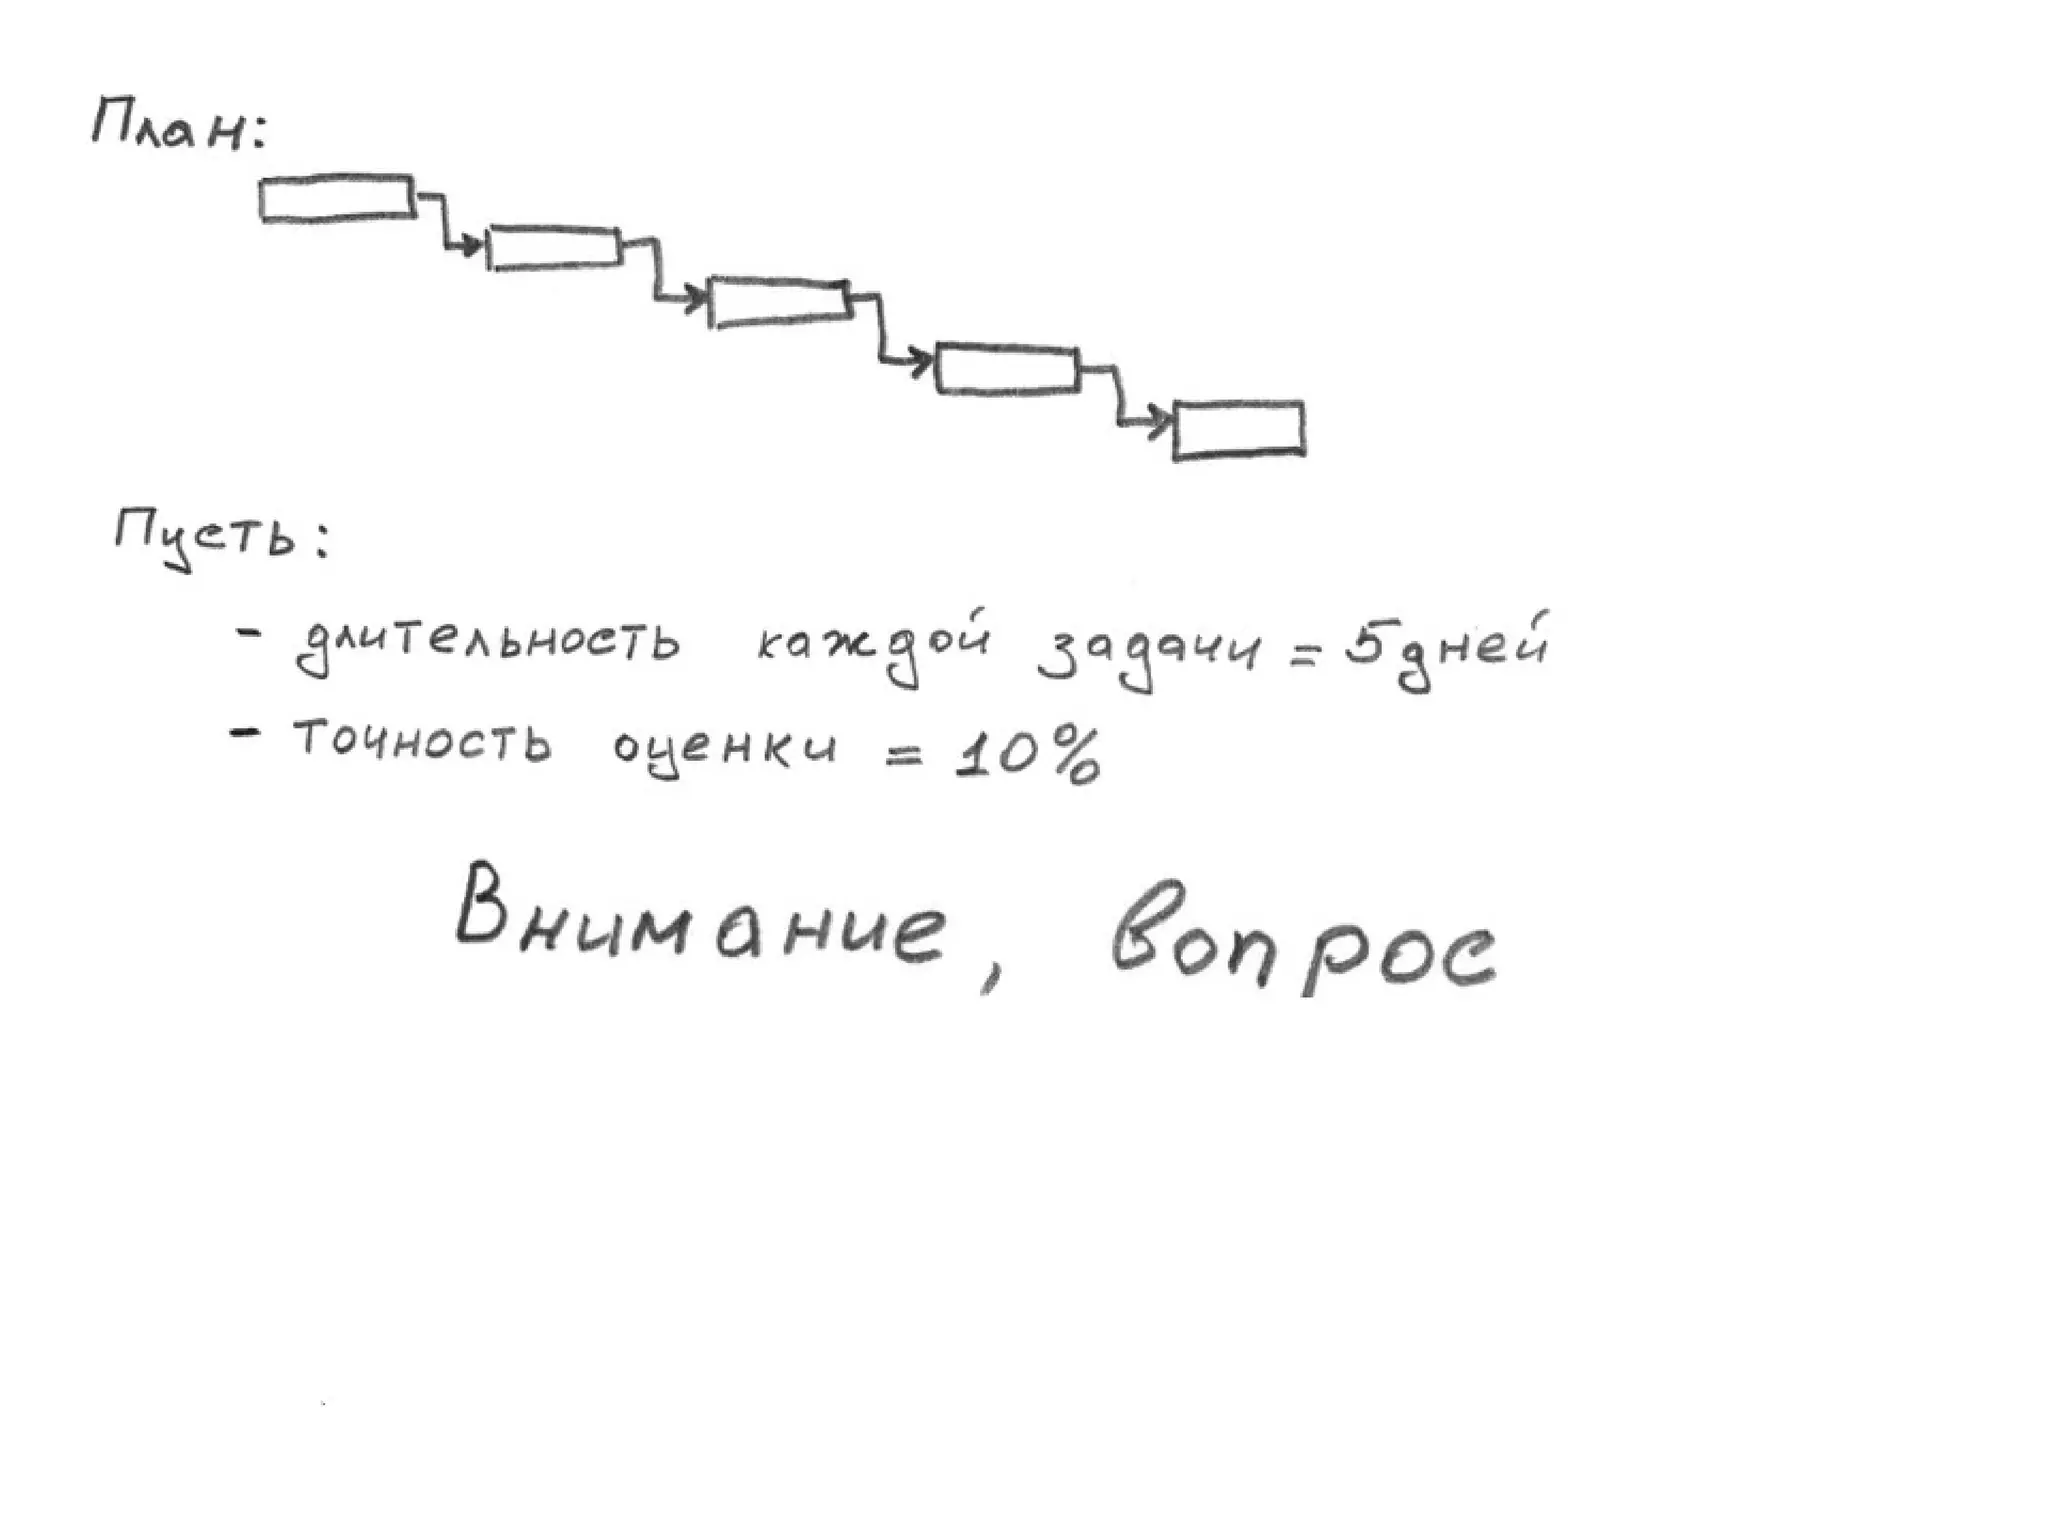 План:
Пусть:
- длительность каждой задачи = 5 дней
- точность оценки = 10%
Внимание, вопрос